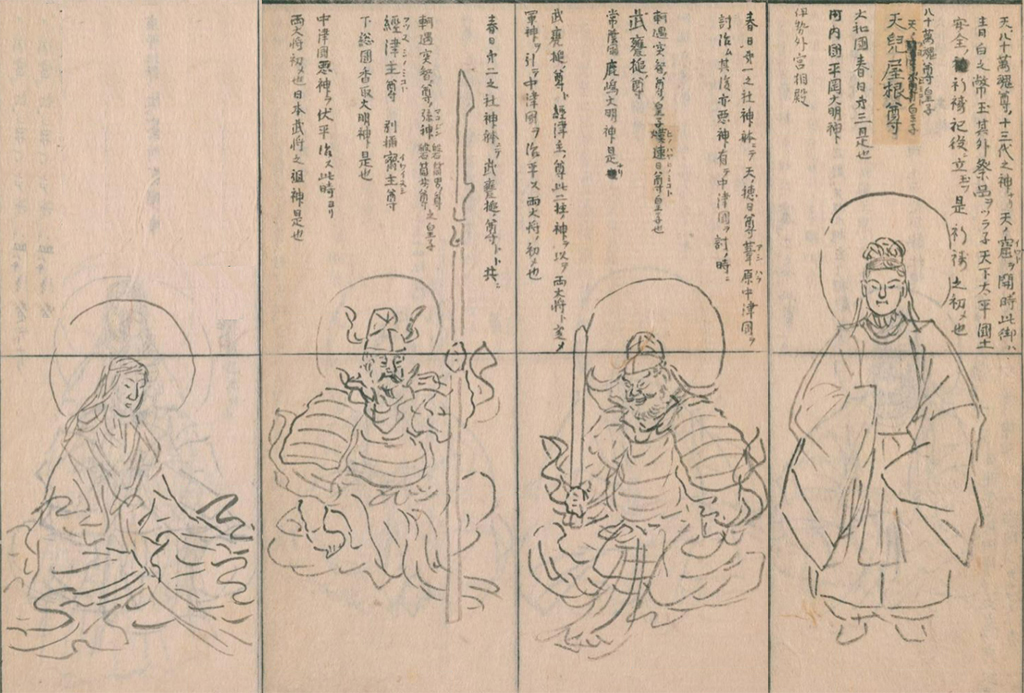 天八十萬魂尊ノ十三代之神ナリ天ノ窟ヲ開時此御ハ
青白之幣玉其外祭品ヲツラ子天下太平國土
安全ノ祈禱祀後立玉フ是祈禱之初メ也
八十萬魂尊皇子
天兒屋根尊
大和國春日ノ三且是也
河内國平岡大明神
伊勢外宮相殿
春日第一之社神躰ニテ天ノ穂日尊葦原中津國ヲ
討治ム其後亦悪神有テ中津國ヲ討ノ時ニ
軻遇突智尊皇子熯速日尊皇子也
武甕槌尊
常陸國鹿嶋大明神是ナリ
武甕槌尊ト經津主ノ尊此二柱ノ神ヲ以テ両大将ト定メ
軍神ヲ引テ中津國ヲ治平ス両大将ノ初メ也
春日第二之社神躰ニテ武甕槌尊ト共ニ
軻遇突智尊ノ孫神磐筒男尊之皇子
經津主尊 別稱齋主尊
下総國香取大明神是也
中津國悪神ヲ伏平治ス此時ヨリ
両大将初メ也日本武将之祖神是也